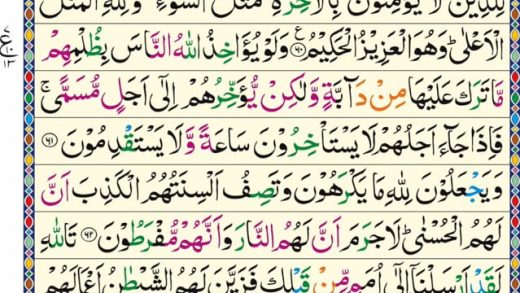 لِلَّذِيْنَ لَا يُؤْمِنُوْنَ بِالْاٰخِرَةِ مَثَلُ السَّوْءِ ۚ وَلِلّٰهِ الْمَثَلُ
الْاَعْلٰى ؕ وَهُوَ الْعَزِيْزُ الْحَكِيْمُ ﴿۶۰﴾ وَلَوْ يُؤَاخِذُ اللّٰهُ النَّاسَ بِظُلْمِهِمْ
مَّا تَرَكَ عَلَيْهَا مِنْ دَآبَّةٍ وَّلٰكِنْ يُّؤَخِّرُهُمْ اِلٰٓى اَجَلٍ مُّسَمًّى ۚ
فَاِذَا جَآءَ اَجَلُهُمْ لَا يَسْتَاْخِرُوْنَ سَاعَةً وَّلَا يَسْتَقْدِمُوْنَ ﴿۶۱﴾
وَيَجْعَلُوْنَ لِلّٰهِ مَا يَكْرَهُوْنَ وَتَصِفُ اَلْسِنَتُهُمُ الْكَذِبَ اَنَّ
لَهُمُ الْحُسْنٰى ؕ لَا جَرَمَ اَنَّ لَهُمُ النَّارَ وَاَنَّهُمْ مُّفْرَطُوْنَ ﴿۶۲﴾ تَاللّٰهِ
لَقَدْ اَرْسَلْنَاۤ اِلٰٓى اُمَمٍ مِّنْ قَبْلِكَ فَزَيَّنَ لَهُمُ الشَّيْطٰنُ اَعْمَالَهُمْ